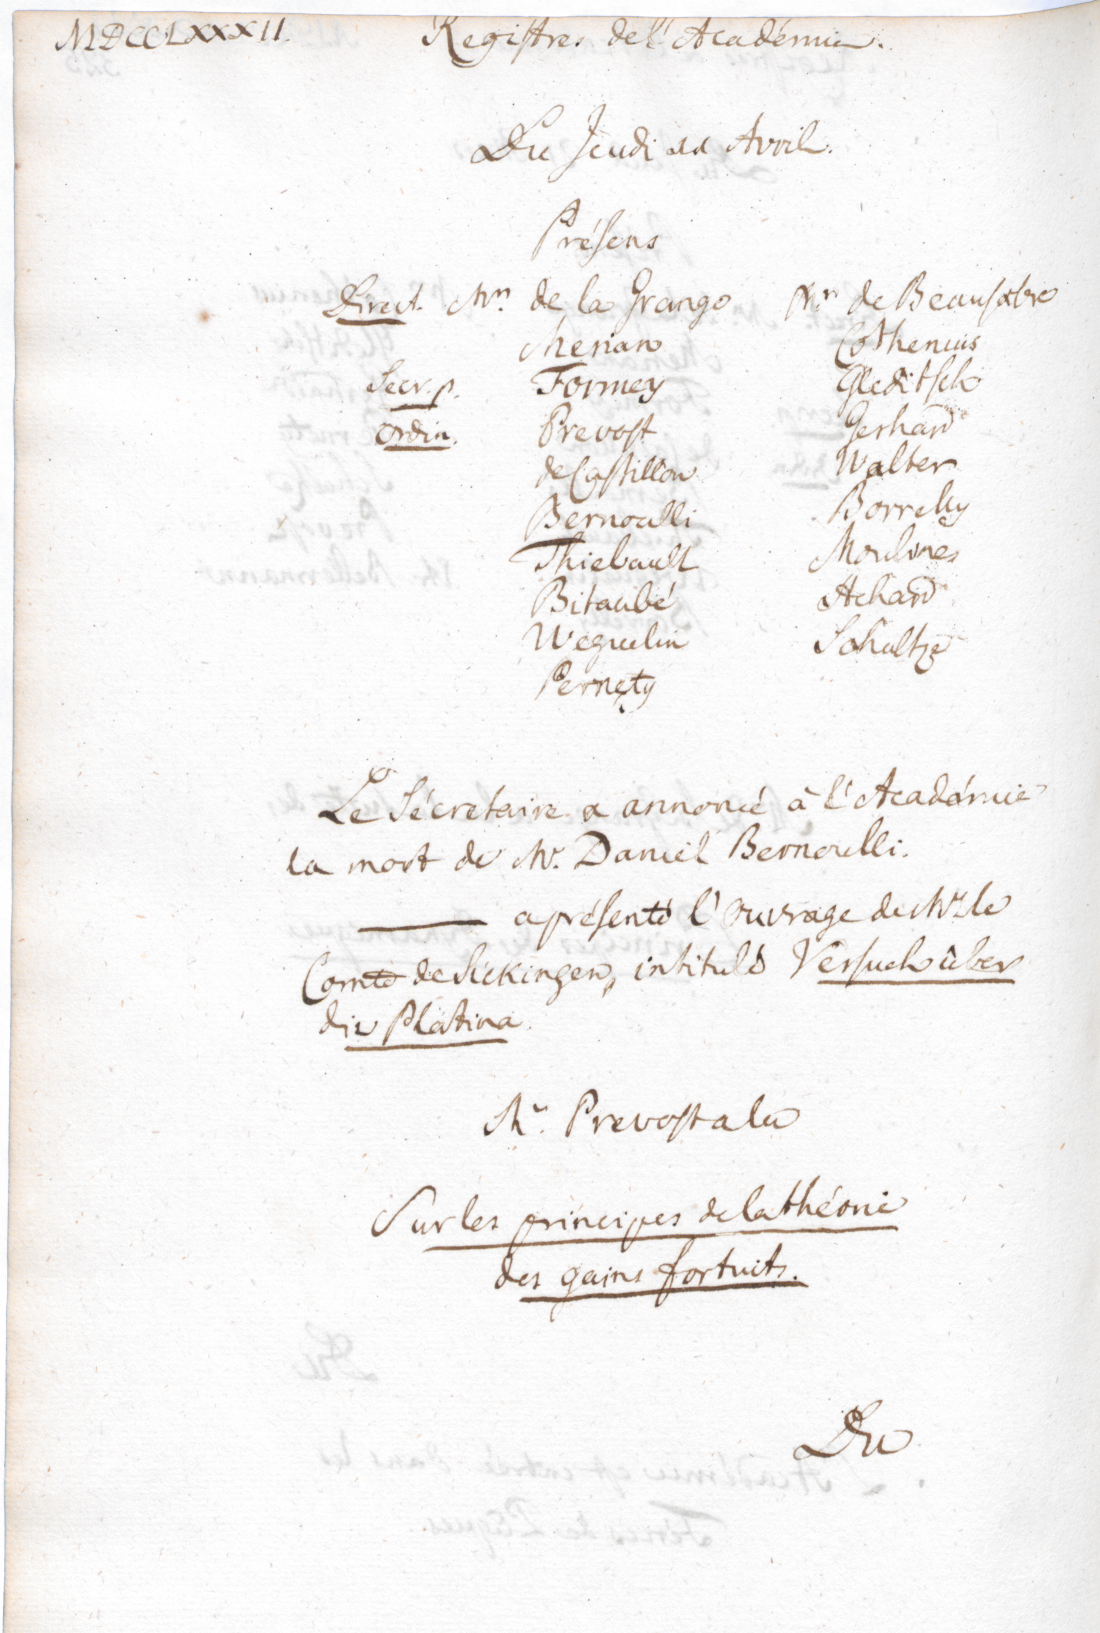 MDCCLXXXII. Registres de l'Académie.
Du Jeudi 11 Avril.
Présens
Direct. Mrs. de la Grange Mrs. de Beausobre
Merian Cothenius
Secr. p. Formey Gleditsch
Ordin. Prevost Gerhard
de Castillon Walter
Bernoulli Borrelly
Thiebault Moulines
Bitaubé Achard
Weguelin Schultze
Pernety
Le Sécretaire a annoncé à l'Académie
la mort de Mr. Daniel Bernoulli.
——— a présenté l'Ouvrage de Mr. le
Comte de Sickingen, intitulé Versuch über
die Platina.
Mr. Prevost a lu
Sur les principes de la théorie
des gains fortuits.
Du